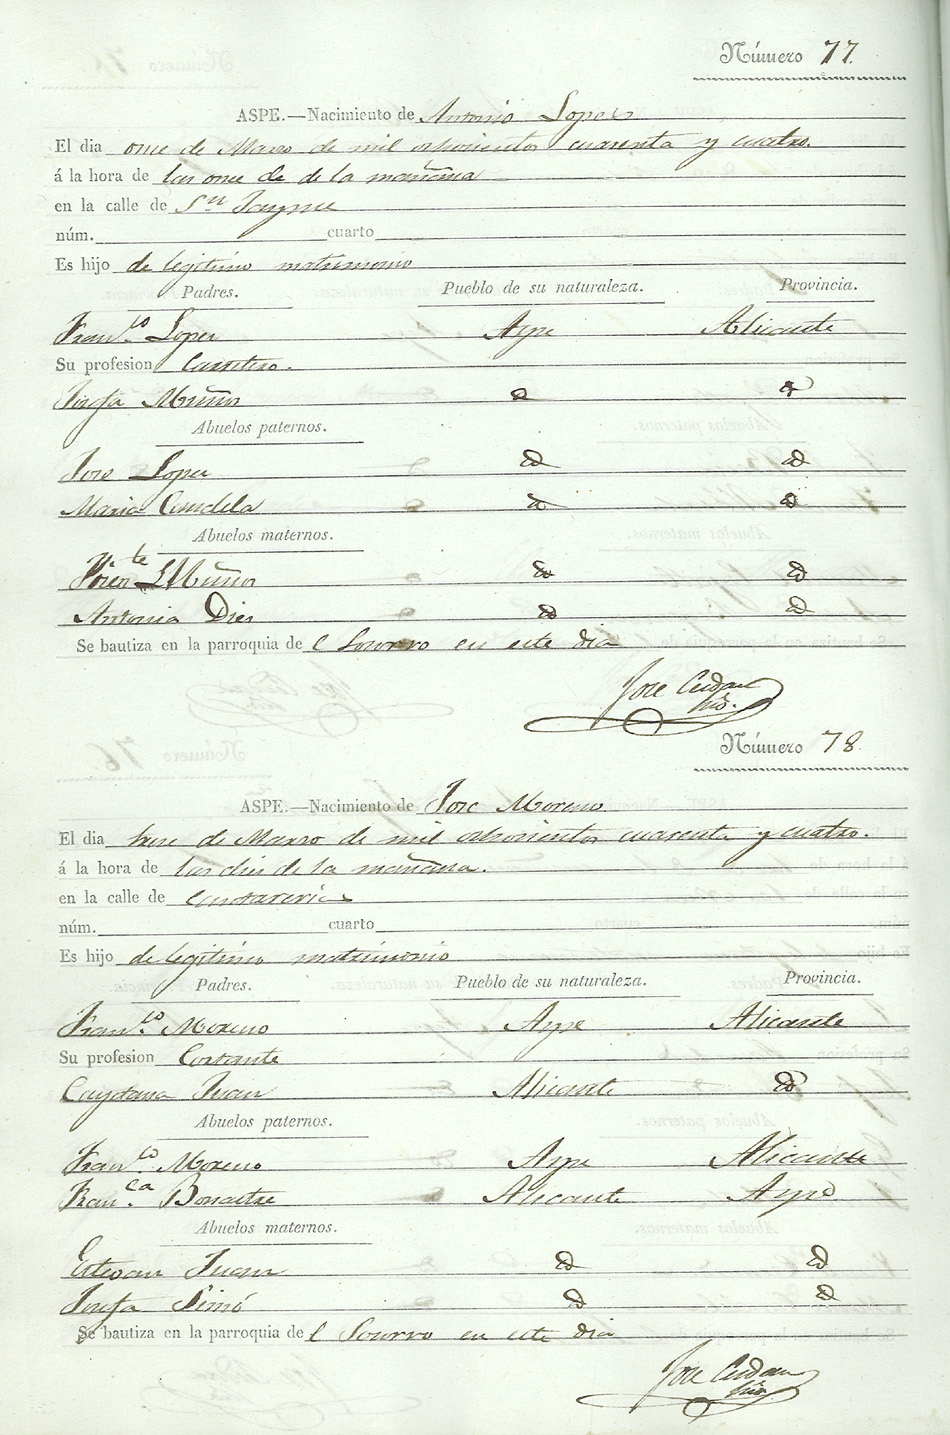 Número 77.
ASPE.—Nacimiento de Antonio Lopez
El dia once de Marzo de mil ochocientos cuarenta y cuatro.
á la hora de las once de de la mañana
en la calle de Sn Jayme
núm. cuarto
Es hijo de legitimo matrimonio
Padres. Pueblo de su naturaleza. Provincia.
Franco. Lopez Aspe Alicante
Su profesion Carretero.
Josefa Muñoz id id
Abuelos paternos.
Jose Lopez id id
Maria Candela id id
Abuelos maternos.
Vicente Muñoz id id
Antonia Diez id id
Se bautiza en la parroquia de l Socorro en este dia
Jose Cerdan
Número 78.
ASPE.—Nacimiento de Jose Moreno
El dia trece de Marzo de mil ochocientos cuarenta y cuatro.
á la hora de las diez de la mañana.
en la calle de Cantareria
núm. cuarto
Es hijo de legitimo matrimonio
Padres. Pueblo de su naturaleza. Provincia.
Franco. Moreno Aspe Alicante
Su profesion Cortante
Caytana Juan Alicante id
Abuelos paternos.
Franco. Moreno Aspe Alicante
Franca. Bonastre Alicante Aspe
Abuelos maternos.
Estevan Juan id id
Josefa Simó id id
Se bautiza en la parroquia de l Socorro en este dia
Jose Cerdan